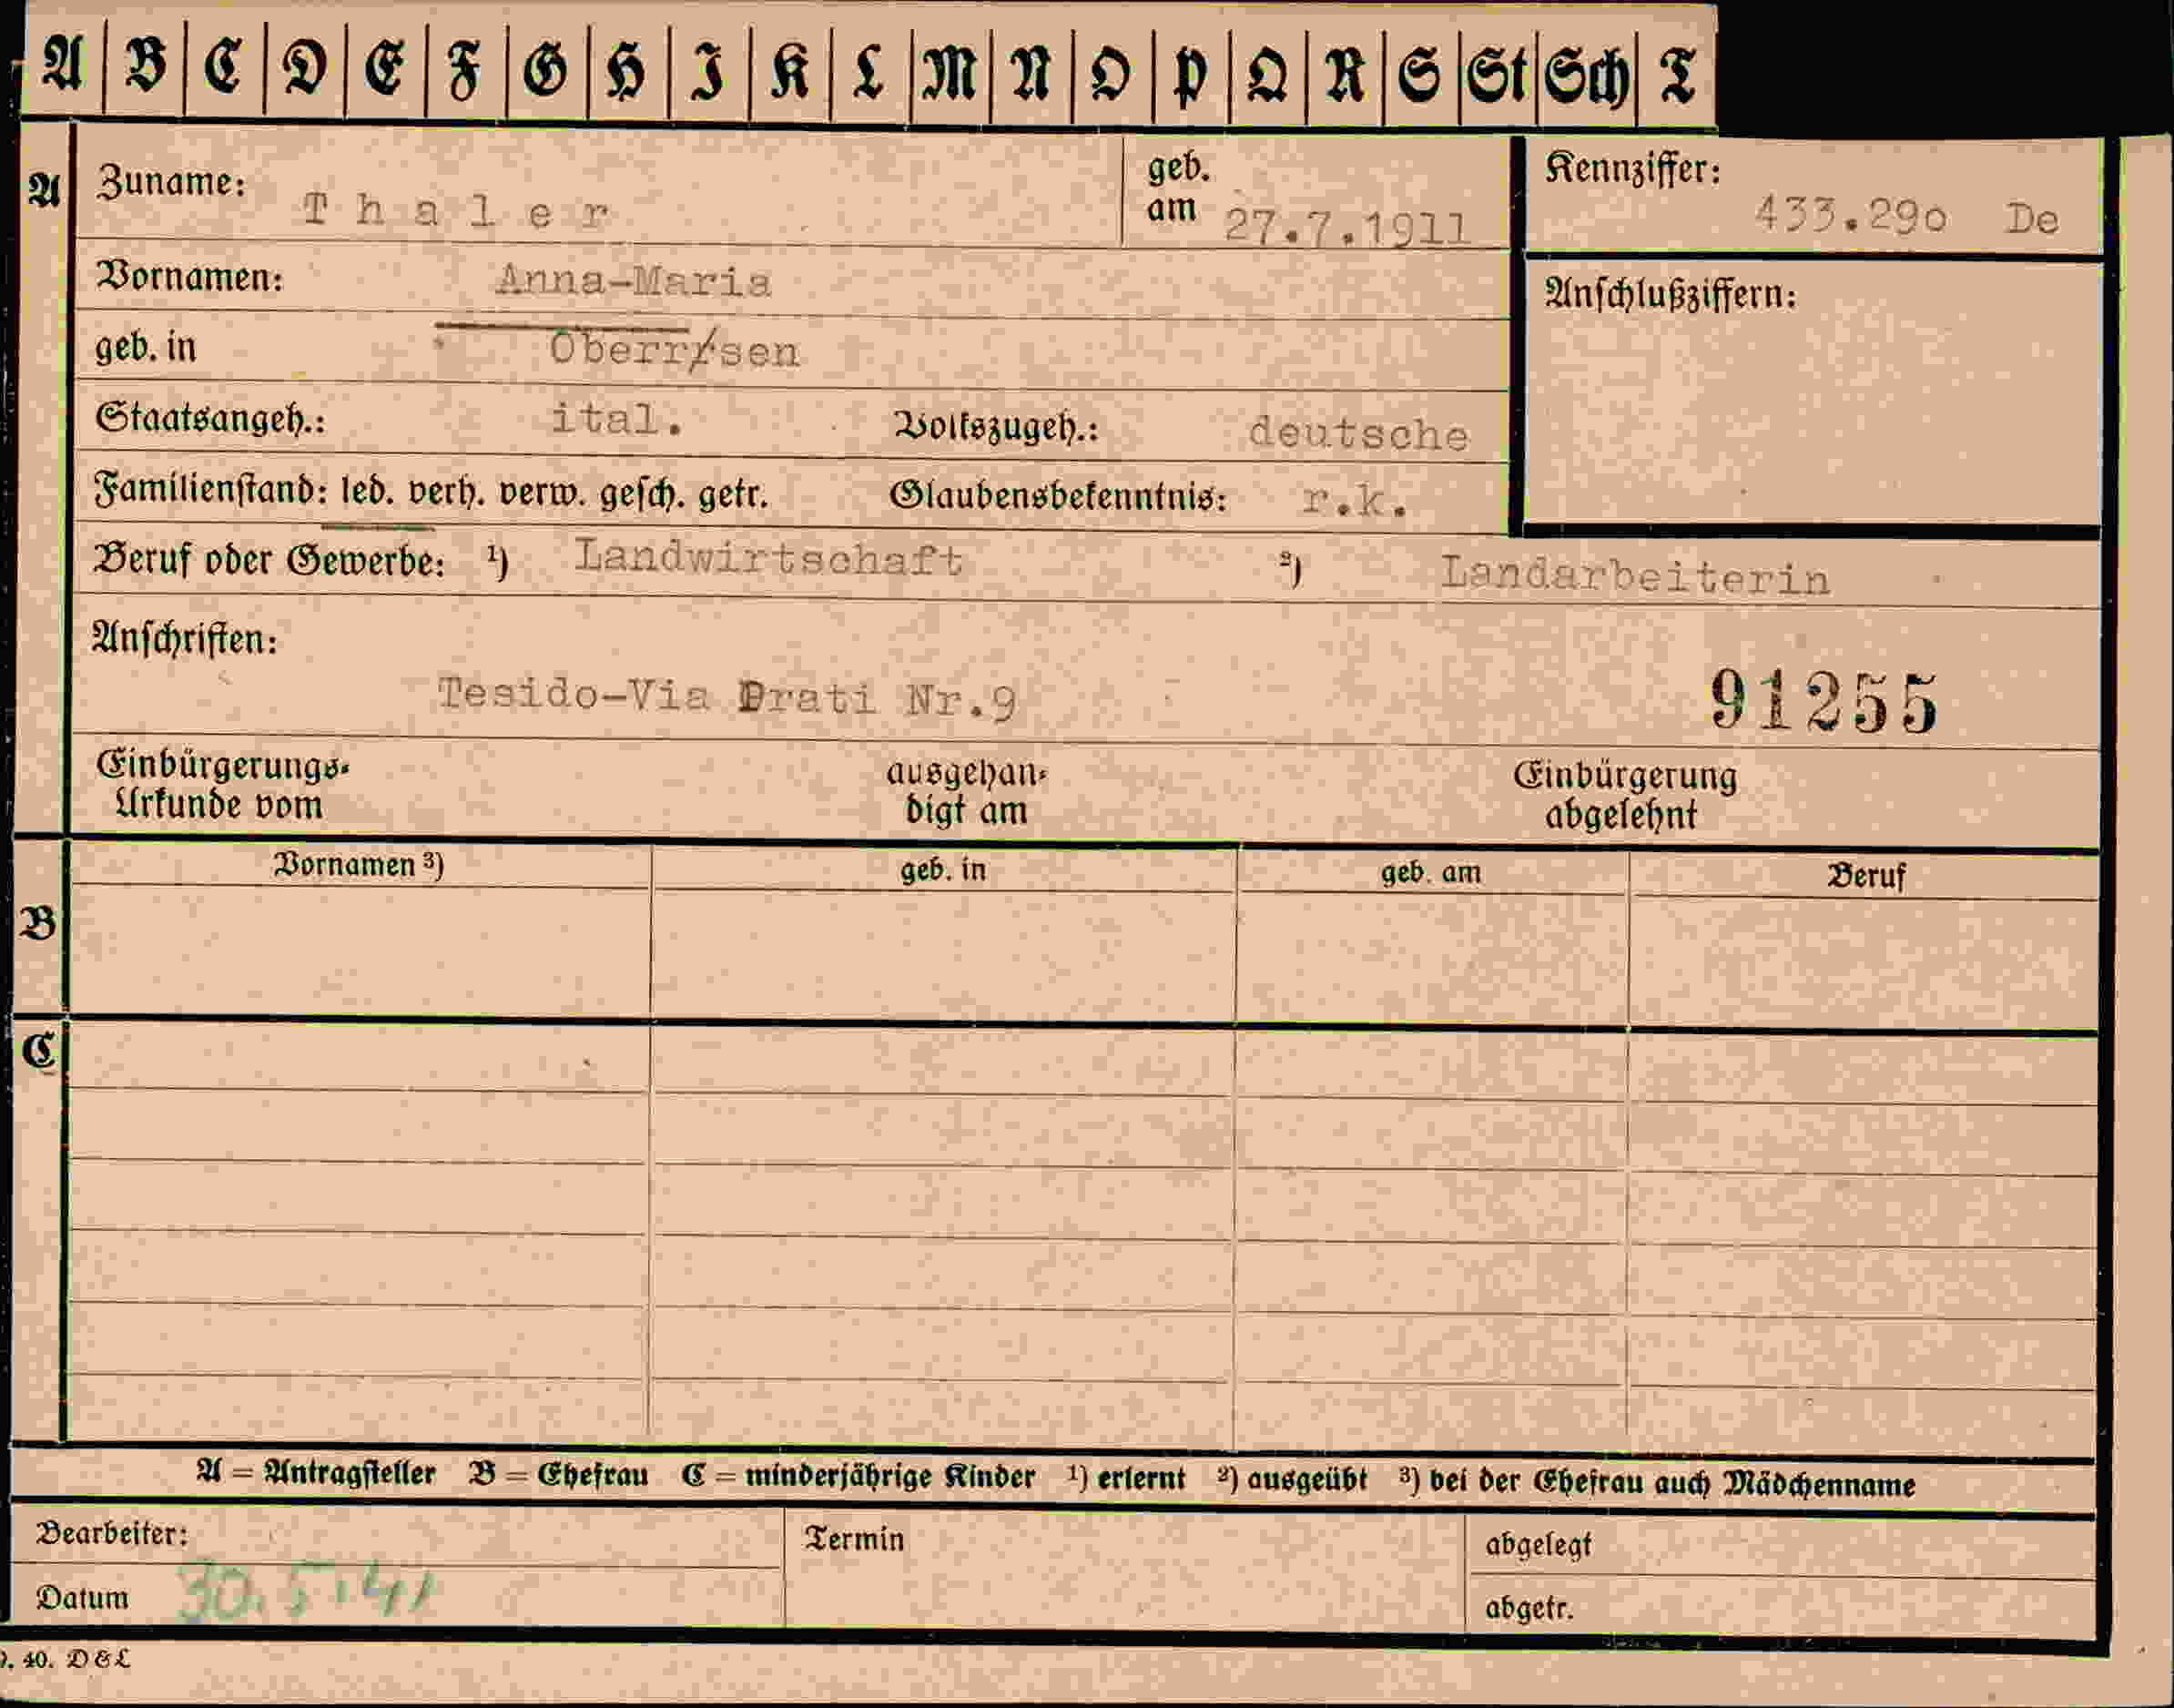 A B C D E F G H I K L M N O P Q R S St Sch T
A Zuname: Thaler geb. am 27.7.1911 Kennziffer: 433.290 De
Vornamen: Anna-Maria Anschlußziffern:
geb. in Oberr/sen
Staatsangeh.: ital. Volkszugeh.: deutsche
Familienstand: led. verh. verw. gesch. getr. Glaubensbekenntnis: r.k.
Beruf oder Gewerbe: ¹) Landwirtschaft ²) Landarbeiterin
Anschriften:
Tesido-Via Prati Nr.9 91255
Einbürgerungs- ausgehan- Einbürgerung
Urkunde vom digt am abgelehnt
Vornamen ³) geb. in geb. am Beruf
B
C
A = Antragsteller B = Ehefrau C = minderjährige Kinder ¹) erlernt ²) ausgeübt ³) bei der Ehefrau auch Mädchenname
Bearbeiter: Termin abgelegt
Datum 30.5.41 abgetr.
40. D & L